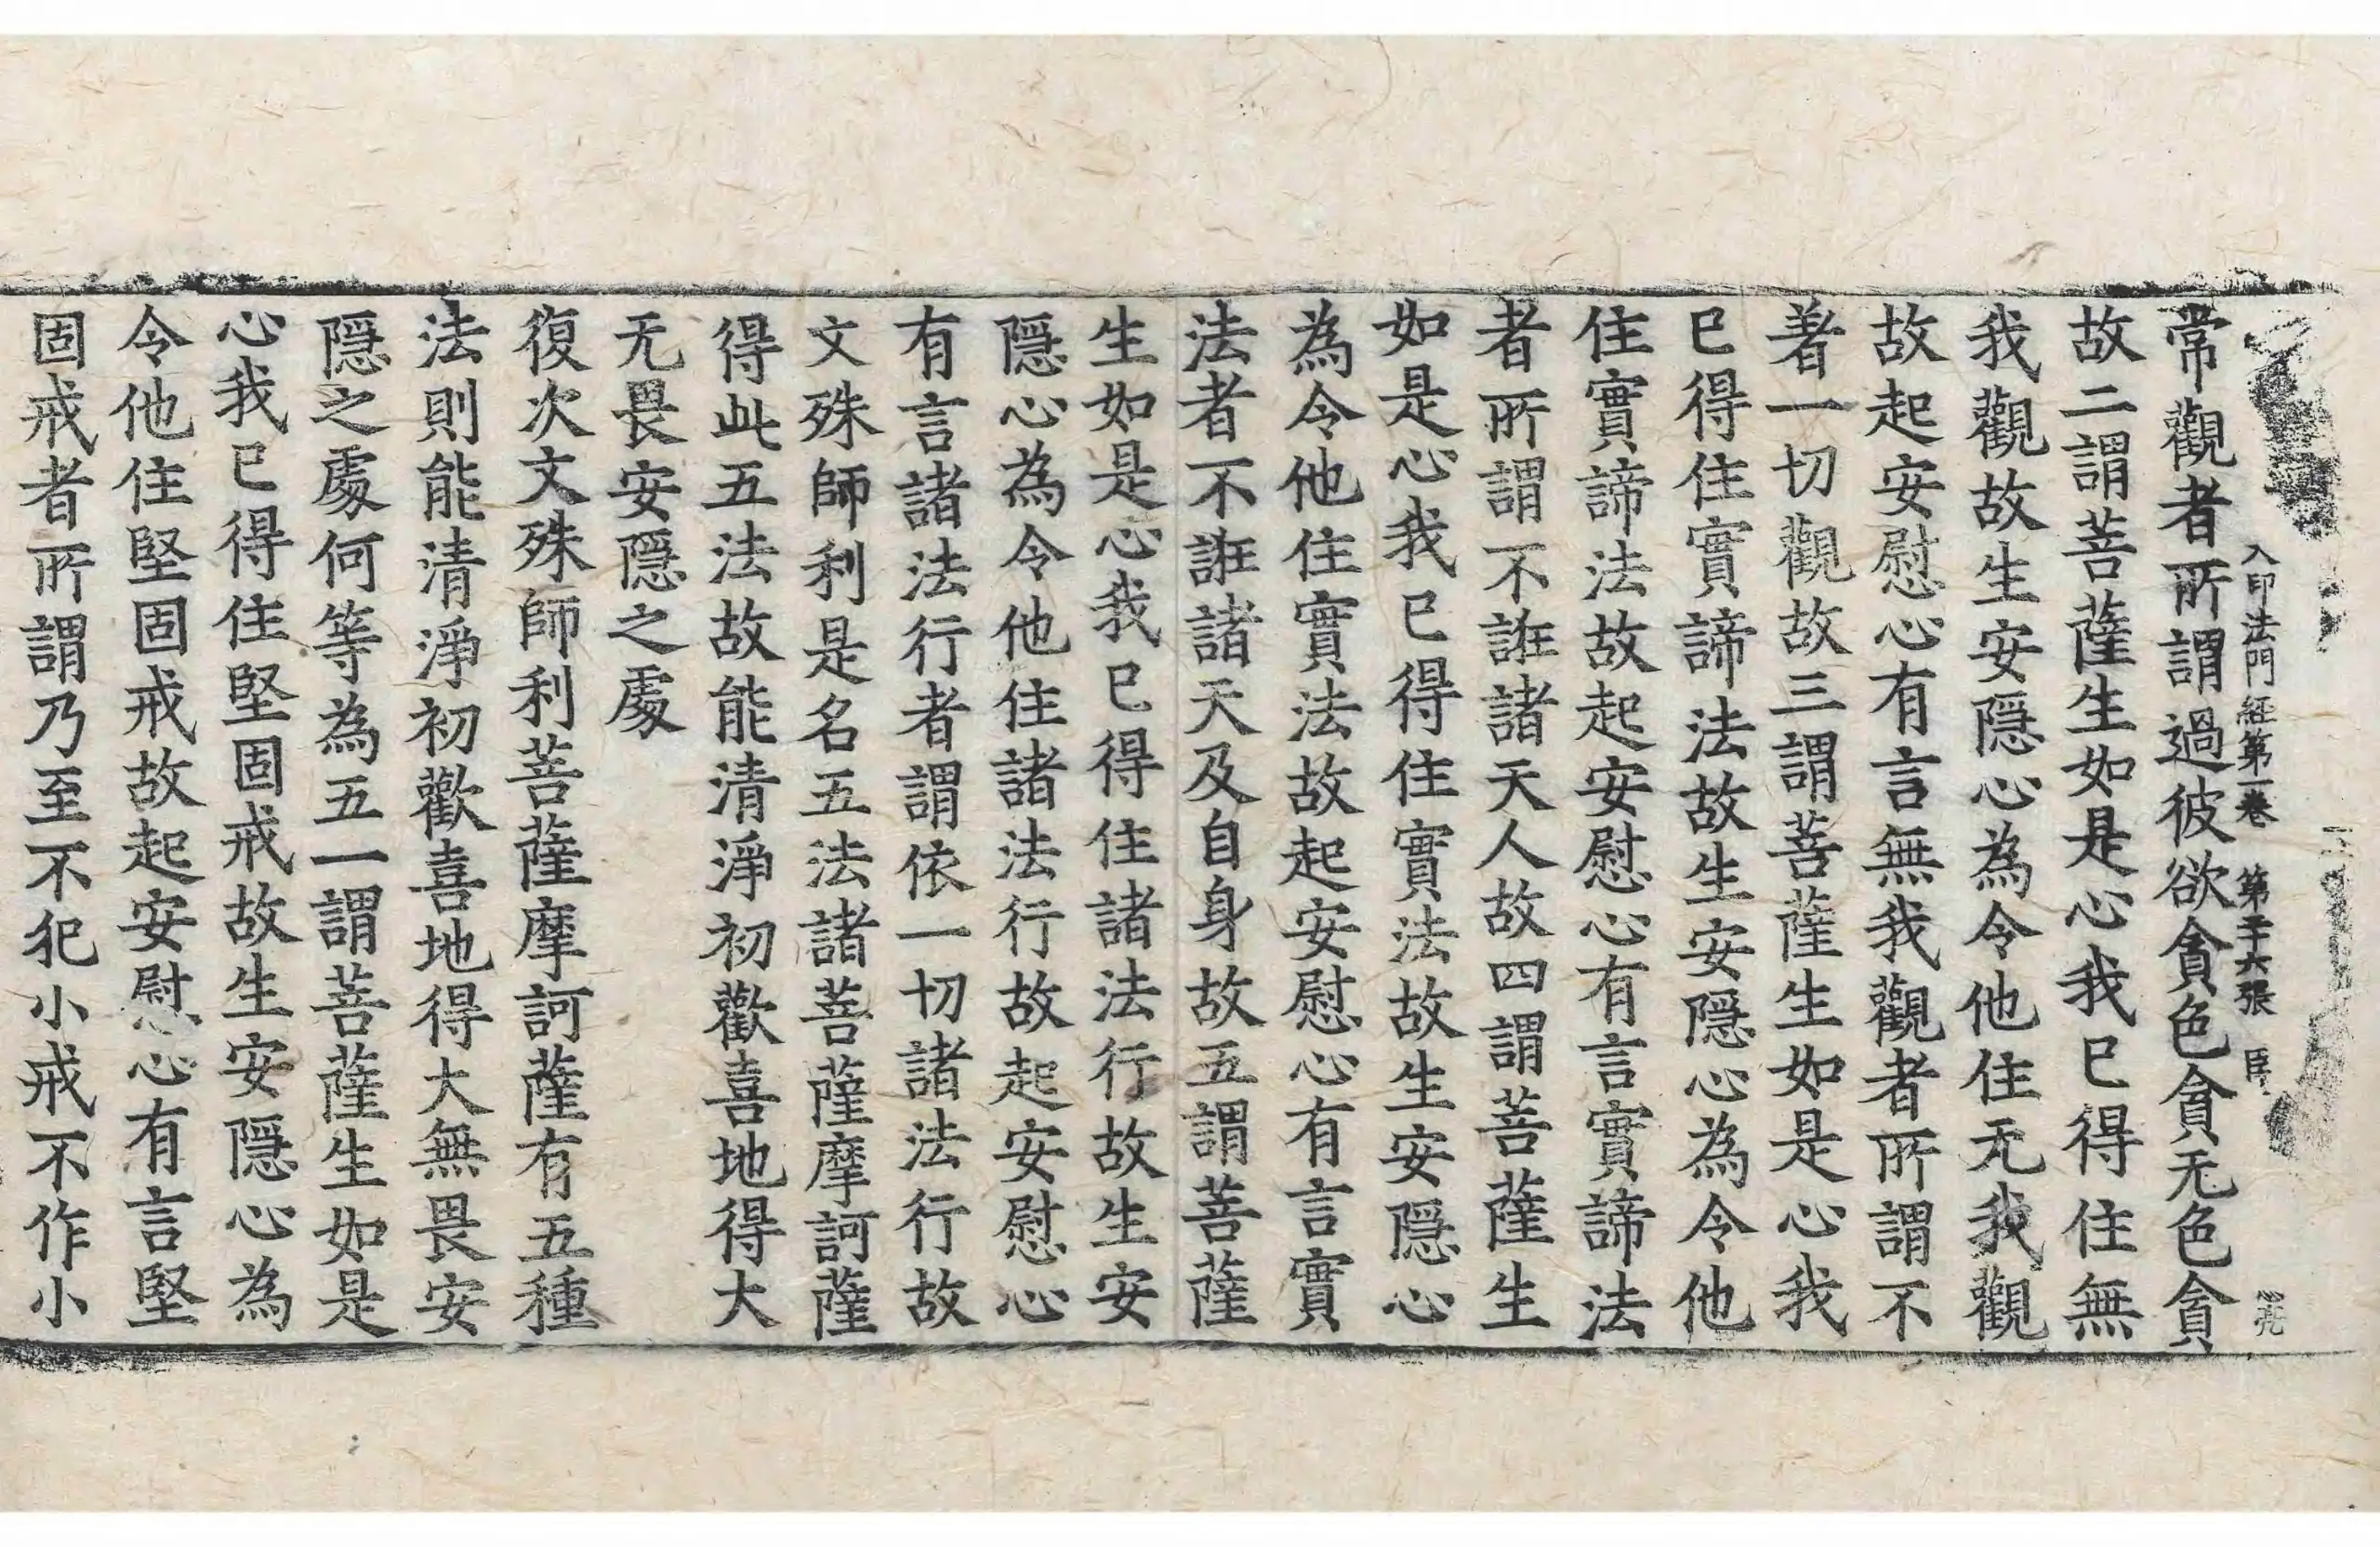 入印法門經第一卷 第二十六張 臣
常觀者所謂過彼欲貪色貪无色貪
故二謂菩薩生如是心我已得住無
我觀故生安隱心為令他住无我觀
故起安慰心有言無我觀者所謂不
著一切觀故三謂菩薩生如是心我
已得住實諦法故生安隱心為令他
住實諦法故起安慰心有言實諦法
者所謂不誑諸天人故四謂菩薩生
如是心我已得住實法故生安隱心
為令他住實法故起安慰心有言實
法者不誑諸天及自身故五謂菩薩
生如是心我已得住諸法行故生安
隱心為令他住諸法行故起安慰心
有言諸法行者謂依一切諸法行故
文殊師利是名五法諸菩薩摩訶薩
得此五法故能清淨初歡喜地得大
无畏安隱之處
復次文殊師利菩薩摩訶薩有五種
法則能清淨初歡喜地得大無畏安
隱之處何等為五一謂菩薩生如是
心我已得住堅固戒故生安隱心為
令他住堅固戒故起安慰心有言堅
固戒者所謂乃至不犯小戒不作小